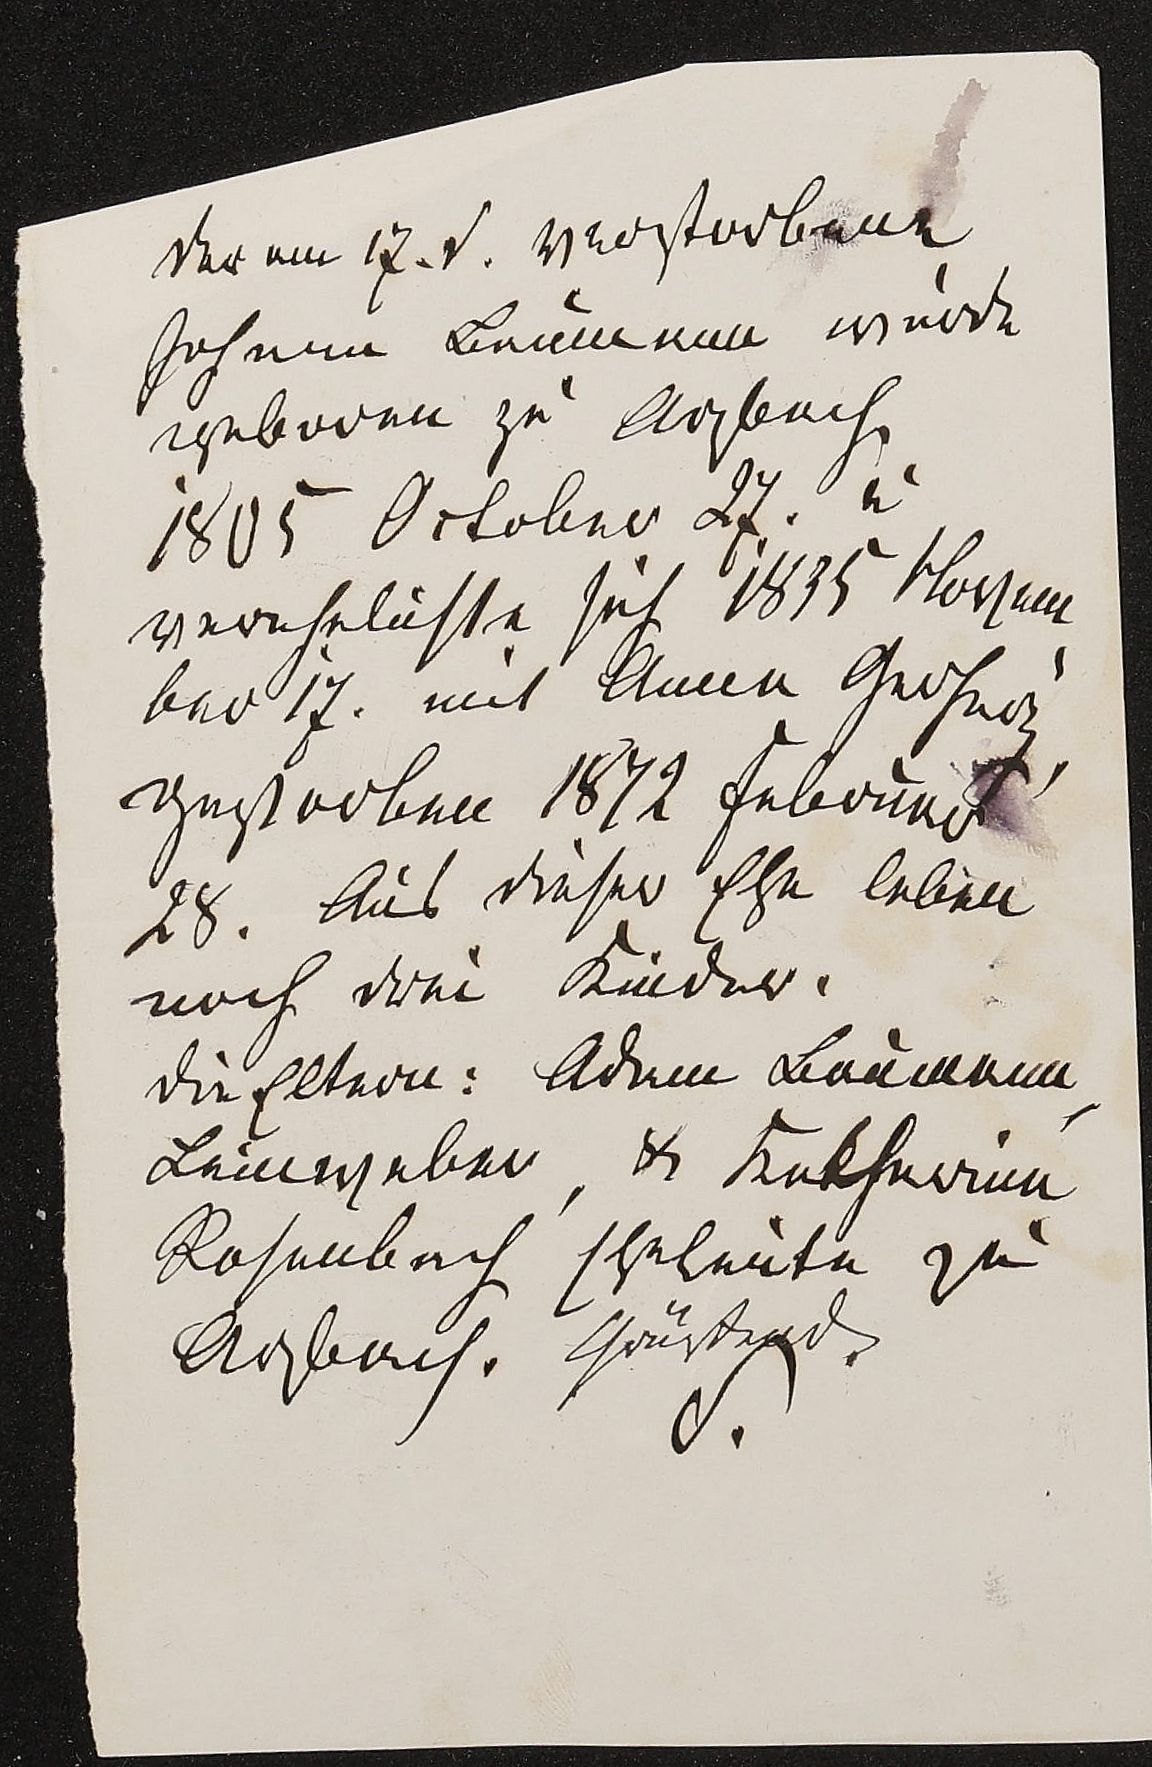 Der am 17. d. verstorbene
Johann Baumann wurde
geboren zu Arzbach
1805 October 27. u
verehelichte sich 1835 Novem
ber 17. mit Anna Gerharz,
gestorben 1872 Februar
28. Aus dieser Ehe leben
noch drei Kinder.
Die Eltern: Adam Baumann,
Leinweber, & Katharina
Rosenbach Eheleute zu
Arzbach. Grüßend.